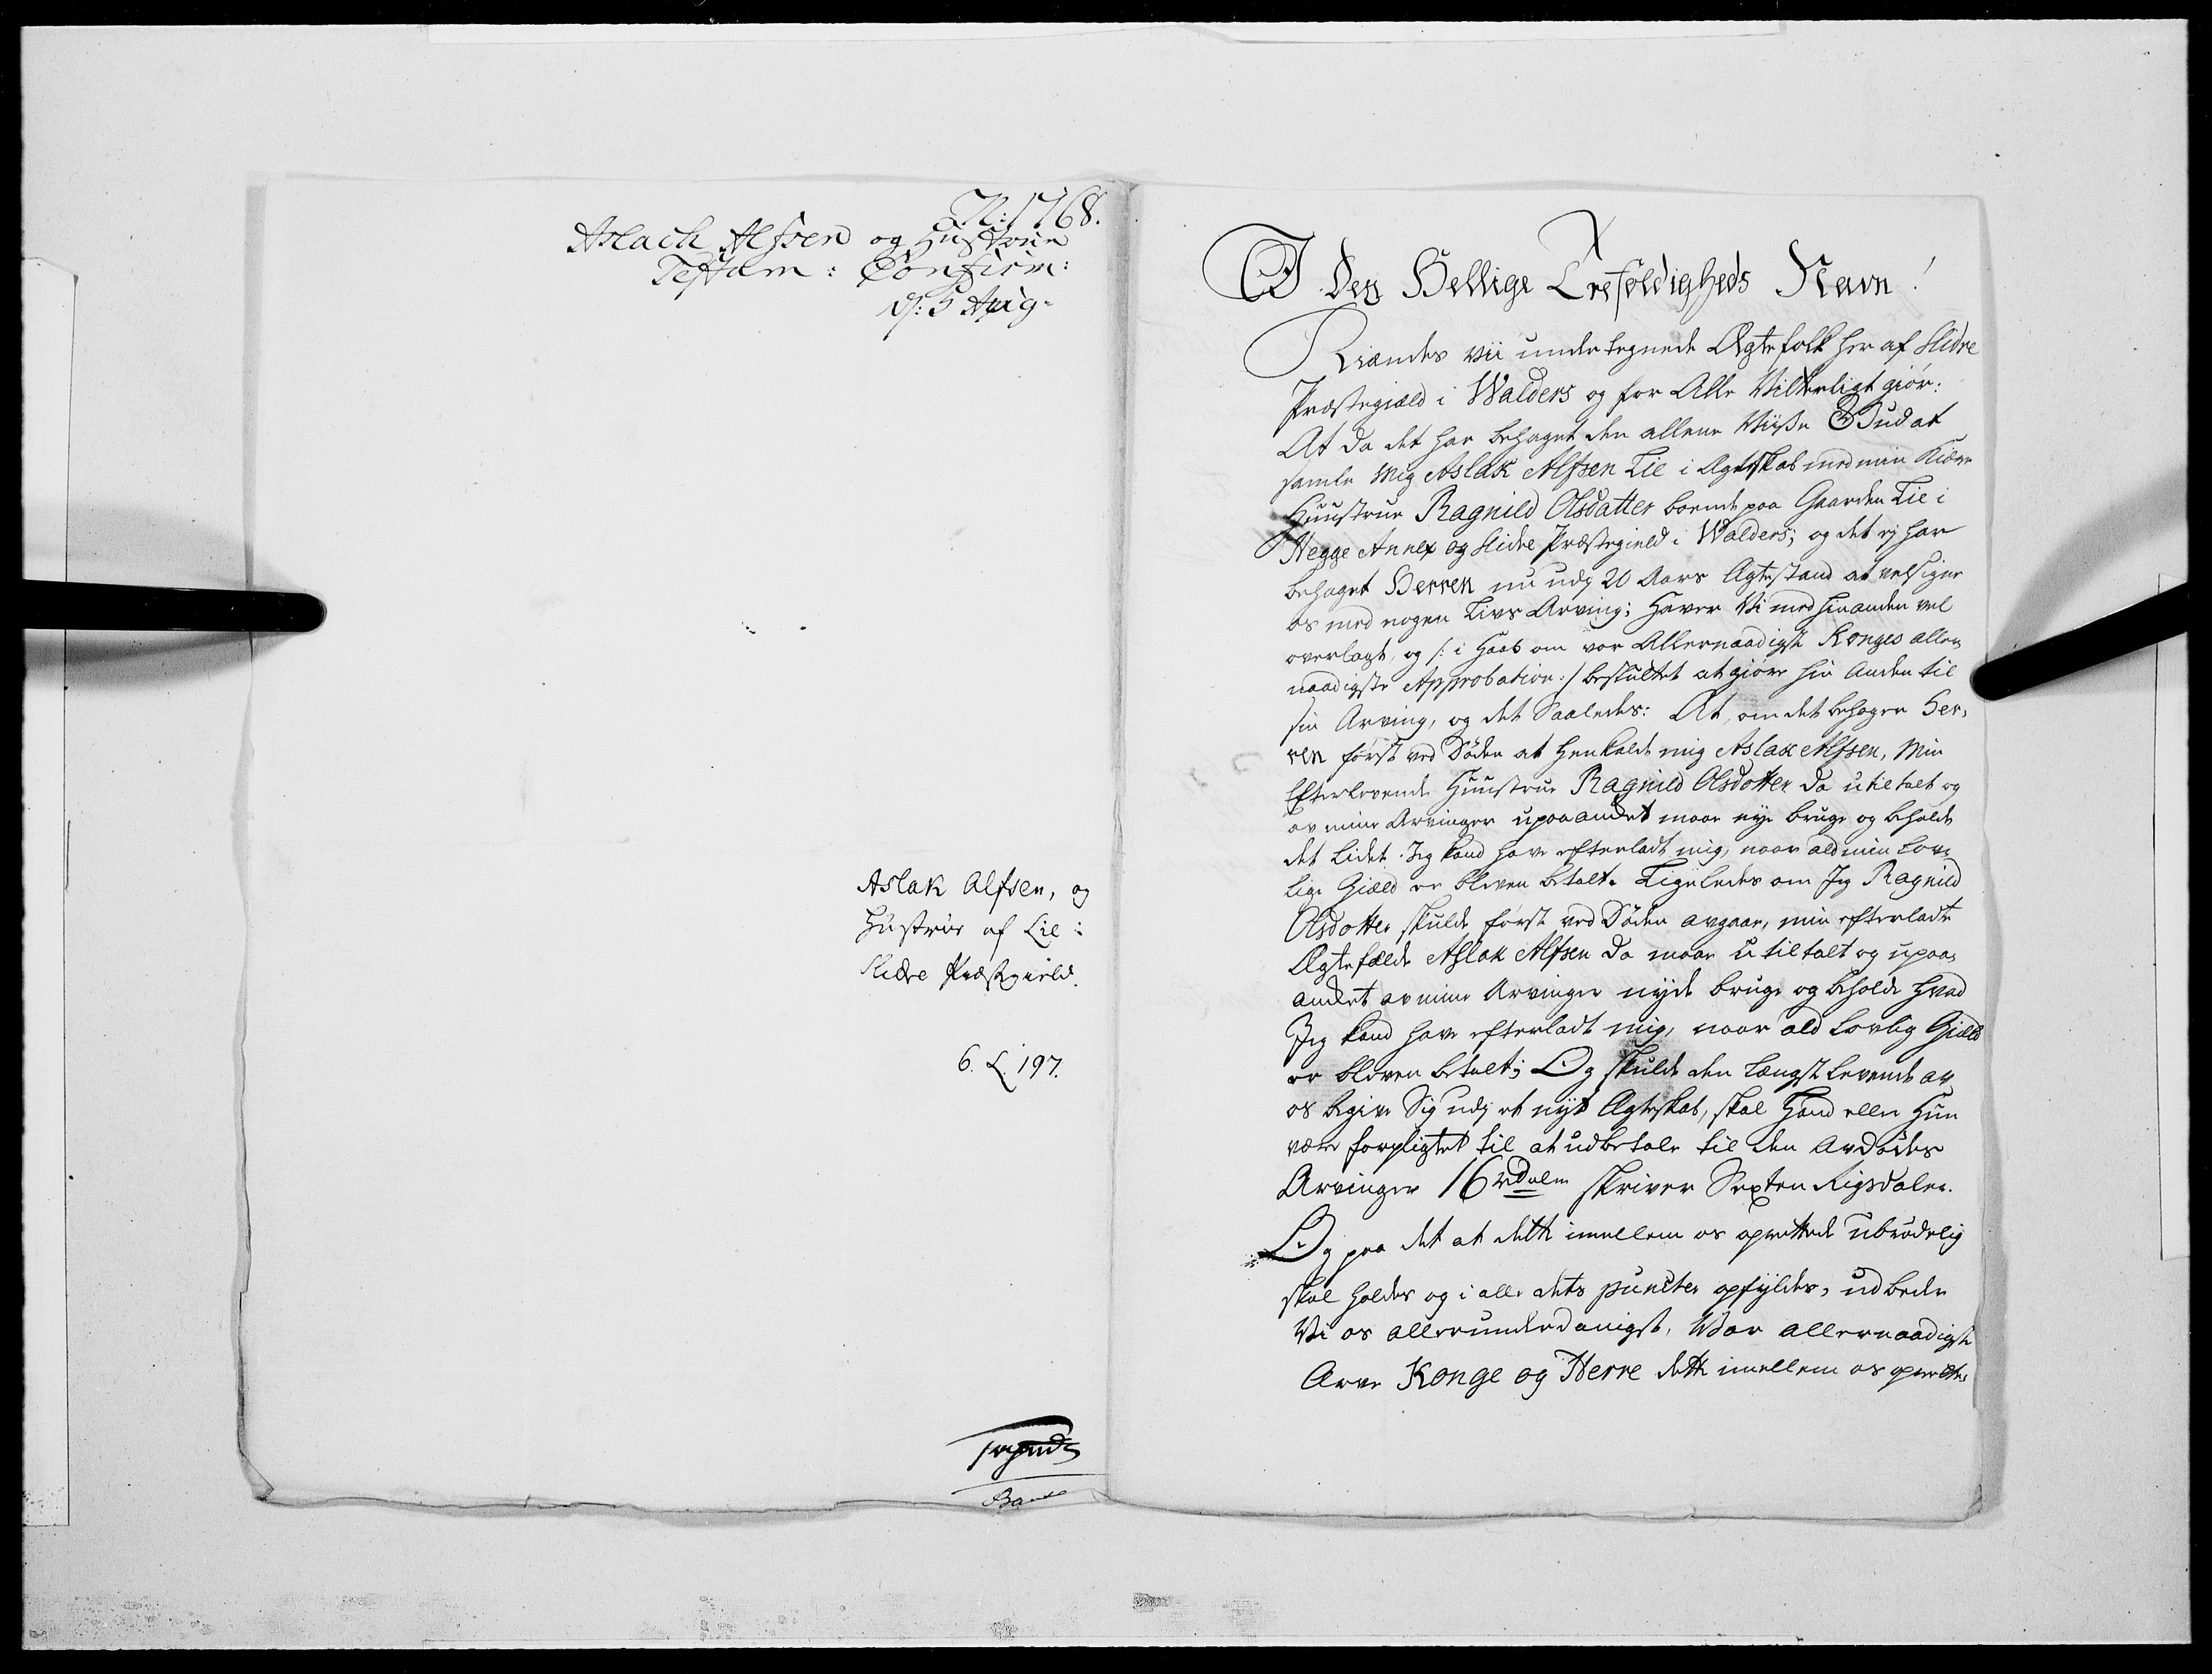 N: 1768.
Aslach Alfsen og Hustrue
Testam: Confirm:
d: 5 Aug.
Aslak Alfsen, og
Hustrue af Lie :
Slidre Præstegield.
6. L. 197.
I Den Hellige Trefoldigheds Navn!
Kiændes vii undertegnede Ægtefolk her af Slidre
Præstegiæld i Walders og for Alle Vitterligt giør:
At da det har behaget den allene Viise Gud at
samle Mig Aslak Alfsen Lie i Ægteskab med min Kiære
Huustrue Ragnild Olsdatter boende paa Gaarden Lie i
Hegge Annex og Slidre Præstegield i Walders; og det ej har
behaget Herren nu udj 20 Aars Ægtestand at velsigne
os med nogen Livs Arving; Haver Vi med hinanden vel
overlagt, og /: i Haab om vor Allernaadigste Konges aller,
naadigste Approbation :/ besluttet at giøre hin Anden til
sin Arving, og det Saaledes: At, om det behager Her,
ren først ved Døden at henkalde mig Aslak Alfsen, Min
Efterlevende Huustrue Ragnild Olsdotter da utiltalt og
av mine Arvinger upaaandet maae nye bruge og beholde
det lidet Jeg kand have efterladt mig, naar ald min Lov,
lige Giæld er bleven betalt. Ligeledes om Jeg Ragnild
Olsdotter skulde først ved Døden avgaae, min efterladte
Ægtefælde Aslak Alfsen da maae utiltalt og upaa,
andet av mine Arvinger nyde bruge og beholde hvad
Jeg kand have efterladt mig, naar ald lovlig Giæld
er bleven betalt; Og skulde den længst levende av
os begive Sig udj et nyt Ægteskab, skal Hand eller Hun
være forpligtet til at udbetale til den Avdødes
Arvinger 16 Rdaler skriver Sexten Rigsdaler.
Og paa det at dette imellem os oprettede ubrødelig
skal holdes og i alle dets puncter opfyldes, udbede
Vi os allerunderdanigst, Vor allernaadigste
Arve Konge og Herre dette imellem os oprette,